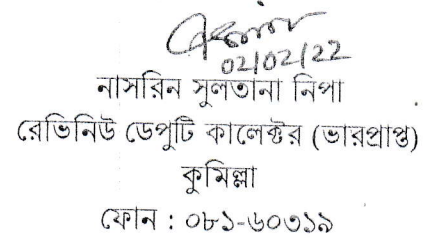 02/02/22
নাসরিন সুলতানা নিপা
রেভিনিউ ডেপুটি কালেক্টর (ভারপ্রাপ্ত)
কুমিল্লা
ফোন : ০৮১-৬০৩১৯